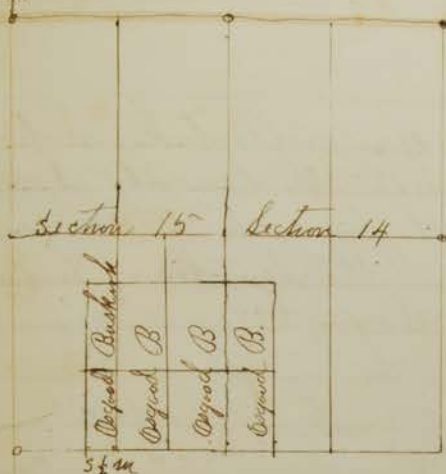 Section 15
Section 14
Osgood Buskirk
Osgood B
Osgood B
Osgood B.